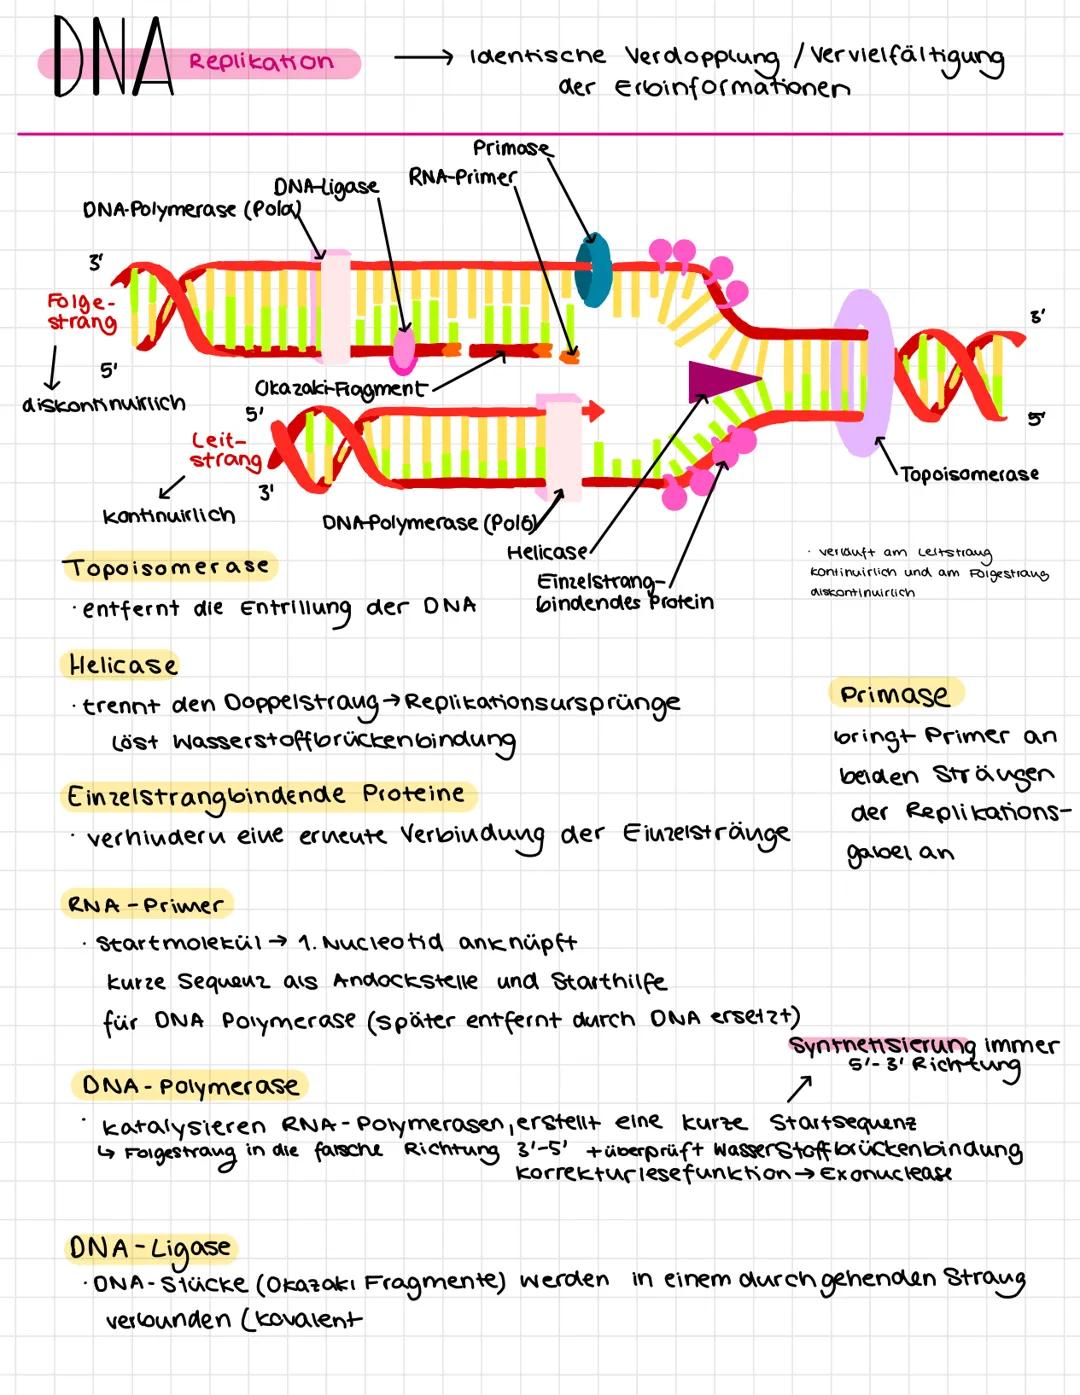 DNA Replikation → Identische Verdopplung / Vervielfältigung
der Erbinformationen
Primase
RNA-Primer
DNA-Ligase
DNA-Polymerase (Polα)
3'
Folge-
strang
5'
diskontinuirlich
Okazaki-Fragment
5'
Leit-
strang
3'
kontinuirlich
DNA-Polymerase (Polδ)
Helicase
Einzelstrang-
bindendes Protein
3'
5'
Topoisomerase
· verläuft am Leitstrang
kontinuirlich und am Folgestrang
diskontinuirlich
Topoisomerase
· entfernt die Entrillung der DNA
Helicase
· trennt den Doppelstrang → Replikationsursprünge
löst Wasserstoffbrückenbindung
Einzelstrangbindende Proteine
· verhindern eine erneute Verbindung der Einzelstränge
Primase
bringt Primer an
beiden Strängen
der Replikations-
gabel an
RNA-Primer
· Startmolekül → 1. Nucleotid anknüpft
kurze Sequenz als Andockstelle und Starthilfe
für DNA Polymerase (später entfernt durch DNA ersetzt)
Synthetisierung immer
5'-3' Richtung
DNA-Polymerase
· katalysieren RNA-Polymerasen, erstellt eine kurze Startsequenz
↳ Folgestrang in die falsche Richtung 3'-5' + überprüft Wasserstoffbrückenbindung
korrekturlesefunktion → Exonuclease
DNA-Ligase
· DNA-Stücke (Okazaki Fragmente) werden in einem durchgehenden Strang
verbunden (kovalent